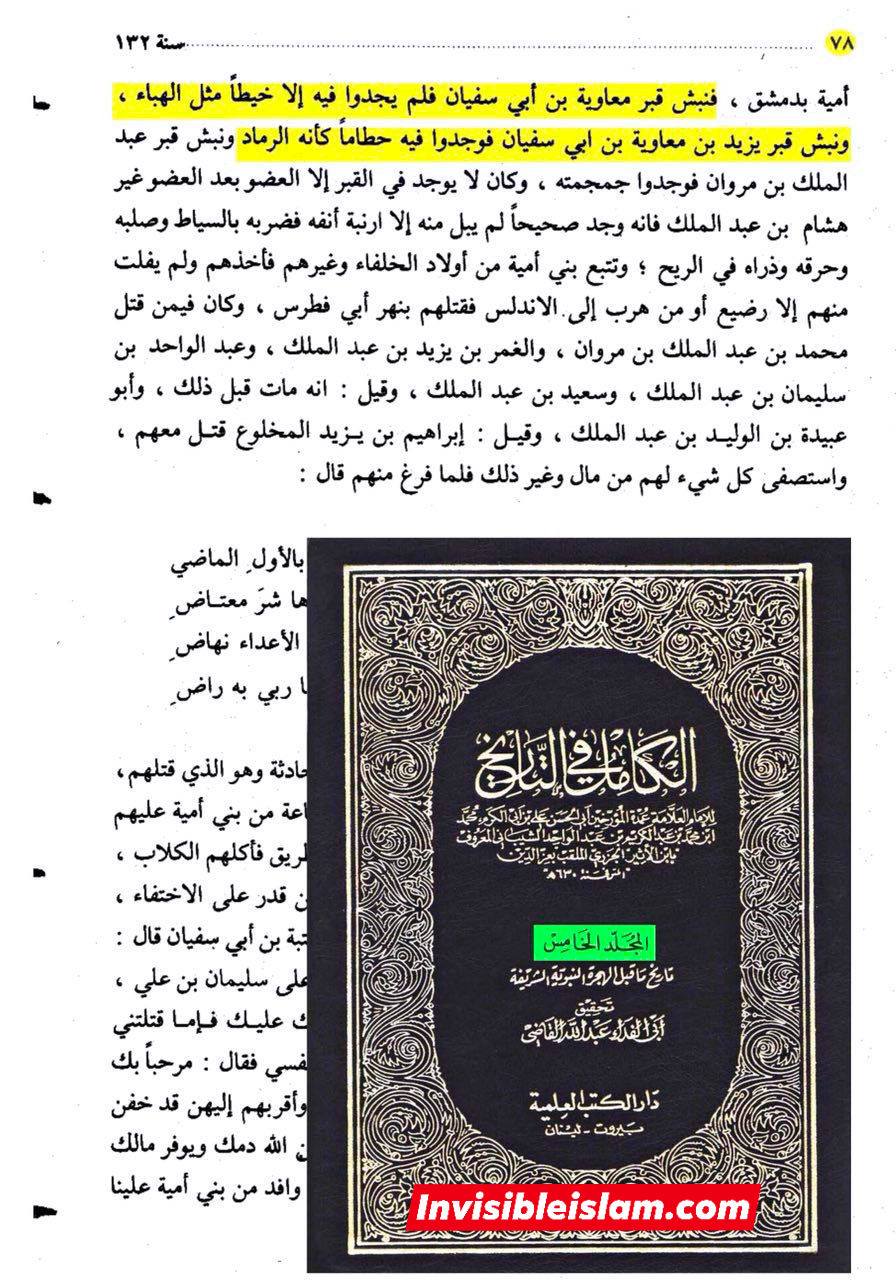 ٧٨ ........ سنة ١٣٢
أمية بدمشق ، فنبش قبر معاوية بن أبي سفيان فلم يجدوا فيه إلا خيطاً مثل الهباء ،
ونبش قبر يزيد بن معاوية بن ابي سفيان فوجدوا فيه حطاماً كأنه الرماد ونبش قبر عبد
الملك بن مروان فوجدوا جمجمته ، وكان لا يوجد في القبر إلا العضو بعد العضو غير
هشام بن عبد الملك فانه وجد صحيحاً لم يبل منه إلا ارنبة أنفه فضربه بالسياط وصلبه
وحرقه وذراه في الريح ؛ وتتبع بني أمية من أولاد الخلفاء وغيرهم فأخذهم ولم يفلت
منهم إلا رضيع أو من هرب إلى الاندلس فقتلهم بنهر أبي فطرس ، وكان فيمن قتل
محمد بن عبد الملك بن مروان ، والغمر بن يزيد بن عبد الملك ، وعبد الواحد بن
سليمان بن عبد الملك ، وسعيد بن عبد الملك ، وقيل : انه مات قبل ذلك ، وأبو
عبيدة بن الوليد بن عبد الملك ، وقيل : إبراهيم بن يزيد المخلوع قتل معهم ،
واستصفى كل شيء لهم من مال وغير ذلك فلما فرغ منهم قال :
بالأولِ الماضي
ها شرَ معتاضِ
الأعداء نهاضِ
ا ربي به راضِ
حادثة وهو الذي قتلهم ،
اعة من بني أمية عليهم
طريق فأكلهم الكلاب ،
ن قدر على الاختفاء ،
تبة بن أبي سفيان قال :
على سليمان بن علي ،
ك عليك فإما قتلتني
نفسي فقال : مرحباً بك
وأقربهم إليهن قد خفن
ن الله دمك ويوفر مالك
وافد من بني أمية علينا
الكامل في التاريخ
للإمام العلامة عمدة المؤرخين أبي الحسن علي بن أبي الكرم محمد
ابن محمد بن عبد الكريم بن عبد الواحد الشيباني المعروف
بابن الأثير الجزري الملقب بعز الدين
المتوفى سنة ٦٣٠هـ
المجلد الخامس
تاريخ ما قبل الهجرة النبوية الشريفة
تحقيق
أبي الفداء عبد الله القاضي
دار الكتب العلمية
بيروت - لبنان
Invisibleislam.com